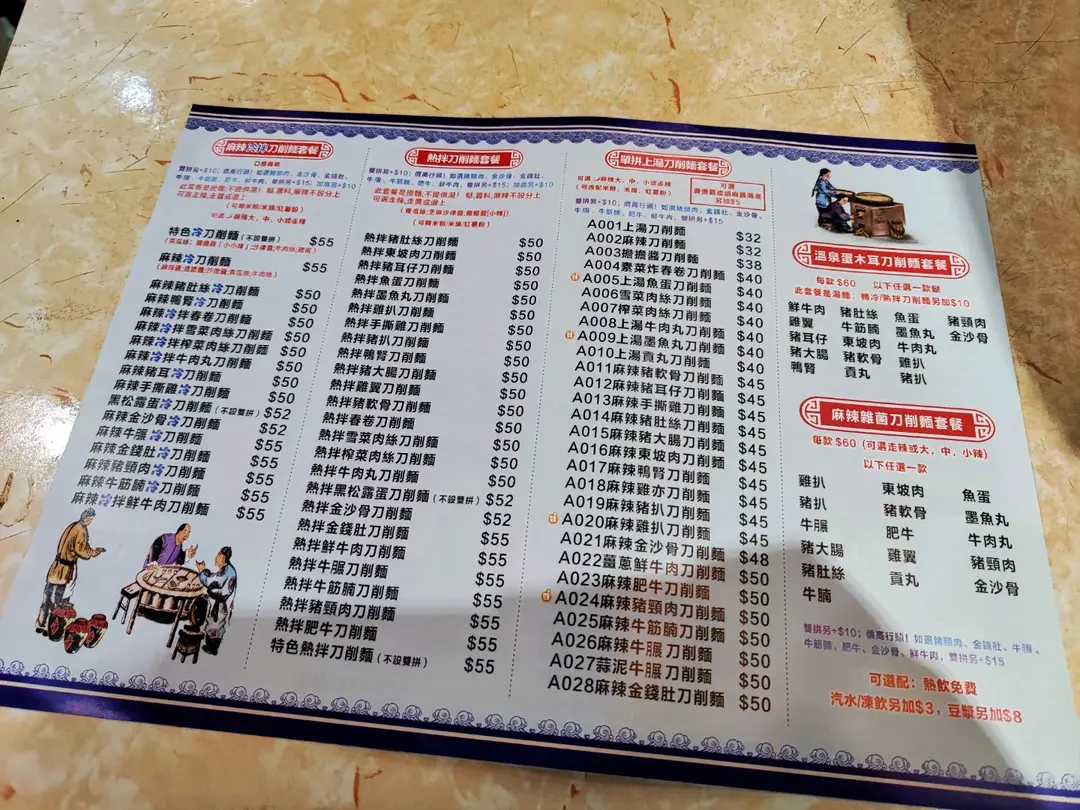 麻辣冷拌刀削麵套餐
口感煙韌
特色冷刀削麵（不設雙拼） $55
麻辣冷刀削麵 $55
麻辣豬肚絲冷刀削麵 $50
麻辣鴨腎冷刀削麵 $50
麻辣冷拌春卷刀削麵 $50
麻辣冷拌雪菜肉絲刀削麵 $50
麻辣冷拌榨菜肉絲刀削麵 $50
麻辣冷拌牛肉丸刀削麵 $50
麻辣豬耳冷刀削麵 $50
麻辣手撕雞冷刀削麵 $50
黑松露蛋冷刀削麵（不設雙拼） $52
麻辣金沙骨冷刀削麵 $52
麻辣牛𦟌冷刀削麵 $55
麻辣金錢肚冷刀削麵 $55
麻辣豬頸肉冷刀削麵 $55
麻辣牛筋腩冷刀削麵 $55
麻辣冷拌鮮牛肉刀削麵 $55
熱拌刀削麵套餐
熱拌豬肚絲刀削麵 $50
熱拌東坡肉刀削麵 $50
熱拌豬耳仔刀削麵 $50
熱拌魚蛋刀削麵 $50
熱拌墨魚丸刀削麵 $50
熱拌雞扒刀削麵 $50
熱拌手撕雞刀削麵 $50
熱拌豬扒刀削麵 $50
熱拌鴨腎刀削麵 $50
熱拌豬大腸刀削麵 $50
熱拌雞翼刀削麵 $50
熱拌豬軟骨刀削麵 $50
熱拌春卷刀削麵 $50
熱拌雪菜肉絲刀削麵 $50
熱拌榨菜肉絲刀削麵 $50
熱拌牛肉丸刀削麵 $50
熱拌黑松露蛋刀削麵（不設雙拼） $52
熱拌金沙骨刀削麵 $52
熱拌金錢肚刀削麵 $55
熱拌鮮牛肉刀削麵 $55
熱拌牛𦟌刀削麵 $55
熱拌牛筋腩刀削麵 $55
熱拌豬頸肉刀削麵 $55
熱拌肥牛刀削麵 $55
特色熱拌刀削麵（不設雙拼） $55
單拼上湯刀削麵套餐
可選 麻辣大、中、小或走辣
（可改配米粉、米線、紅薯粉）
A001上湯刀削麵 $32
A002麻辣刀削麵 $32
A003擔擔醬刀削麵 $38
A004素菜炸春卷刀削麵 $40
A005上湯魚蛋刀削麵 $40
A006雪菜肉絲刀削麵 $40
A007榨菜肉絲刀削麵 $40
A008上湯牛肉丸刀削麵 $40
A009上湯墨魚丸刀削麵 $40
A010上湯貢丸刀削麵 $40
A011麻辣豬軟骨刀削麵 $45
A012麻辣豬耳仔刀削麵 $45
A013麻辣手撕雞刀削麵 $45
A014麻辣豬肚絲刀削麵 $45
A015麻辣豬大腸刀削麵 $45
A016麻辣東坡肉刀削麵 $45
A017麻辣鴨腎刀削麵 $45
A018麻辣雞亦刀削麵 $45
A019麻辣豬扒刀削麵 $45
A020麻辣雞扒刀削麵 $45
A021麻辣金沙骨刀削麵 $48
A022薑蔥鮮牛肉刀削麵 $50
A023麻辣肥牛刀削麵 $50
A024麻辣豬頸肉刀削麵 $50
A025麻辣牛筋腩刀削麵 $50
A026麻辣牛𦟌刀削麵 $50
A027蒜泥牛𦟌刀削麵 $50
A028麻辣金錢肚刀削麵 $50
溫泉蛋木耳刀削麵套餐
每款$60 以下任選一款餸
此套餐是湯麵；轉冷/熱拌刀削麵另加$10
鮮牛肉 豬肚絲 魚蛋 豬頸肉
雞翼 牛筋腩 墨魚丸 金沙骨
豬耳仔 東坡肉 牛肉丸
豬大腸 豬軟骨 雞扒
鴨腎 貢丸 豬扒
麻辣雜菌刀削麵套餐
每款$60（可選走辣或大，中，小辣）
以下任選一款
雞扒 東坡肉 魚蛋
豬扒 豬軟骨 墨魚丸
牛𦟌 肥牛 牛肉丸
豬大腸 雞翼 豬頸肉
豬肚絲 貢丸 金沙骨
牛腩
雙拼另+$10；價高行頭！如選豬頸肉、金錢肚、牛𦟌、
牛筋腩、肥牛、金沙骨、鮮牛肉，雙拼另+$15
可選配：熱飲免費
汽水/凍飲另加$3，豆漿另加$8